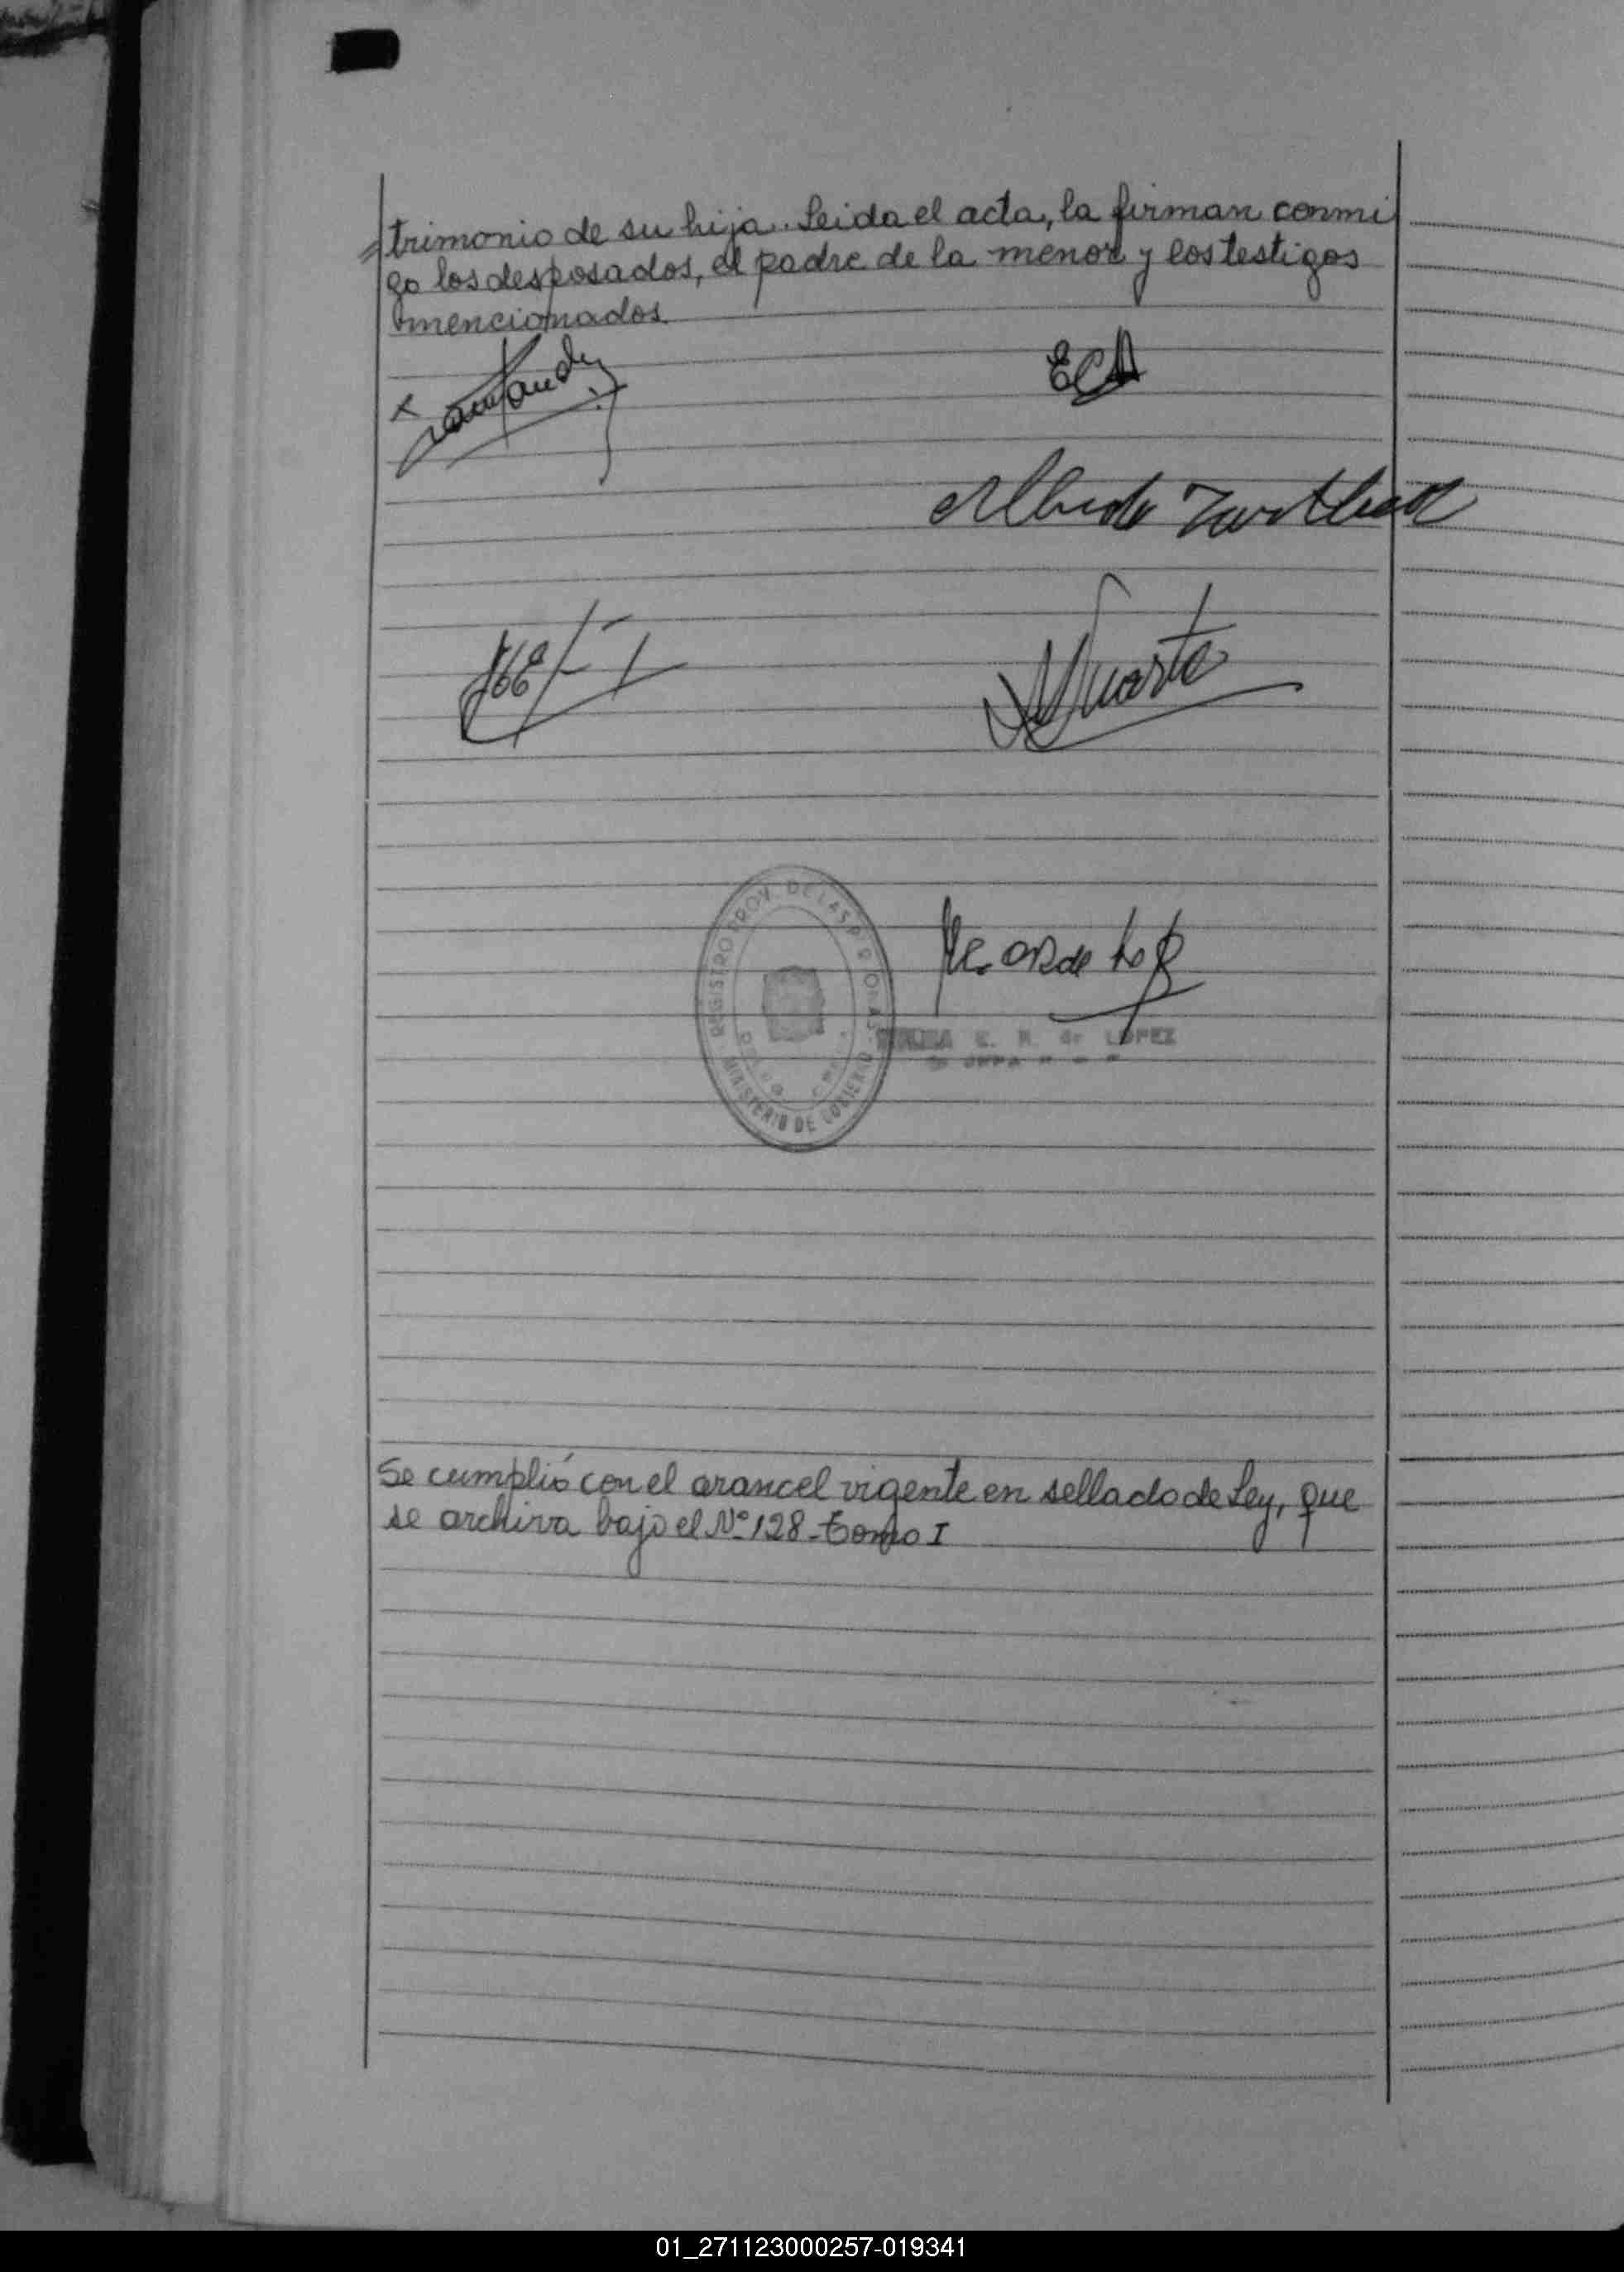 =trimonio de su hija. Leida el acta, la firman conmi
go los desposados, el padre de la menor y los testigos
mencionados
x
ECA
Duarte
REGISTRO PROV. DE LAS PERSONAS
MINISTERIO DE GOBIERNO
E. R. de LOPEZ
Se cumplió con el arancel vigente en sellado de Ley, que
se archiva bajo el Nº 128-Tomo I
01_271123000257-019341